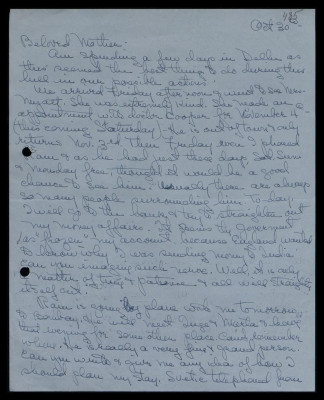 Oct 30
Beloved Mother:
Am spending a few days in Delhi as
this seemed the best thing to do during this
lull in our possible actions.
We arrived Friday afternoon & went to see Mrs.
Myatt. She was extremely kind. She made an
appointment with doctor Cooper for November 4
this coming Saturday. He is out of town & only
returns Nov. 3rd. Then Friday even I phoned
Ram & as he had just three days, Sat. Sun
& Monday free, thought it would be a good
chance to see him. Usually there are always
so many people surrounding him. To-day
I will go to the bank & try to straighten out
my money affairs. It seems the Government
has frozen my account because England wants
to know why I was sending money to India
can you imagine such nerve. Well it is only
a matter of time & patience & all will straighten
itself out.
Ram is going by plane with me tomorrow
to Bombay. He will meet & have
that evening for some other place can't remember
where. He is really a very fine & grand person.
Can you write & give me any idea of how I
should plan my stay. has phoned from